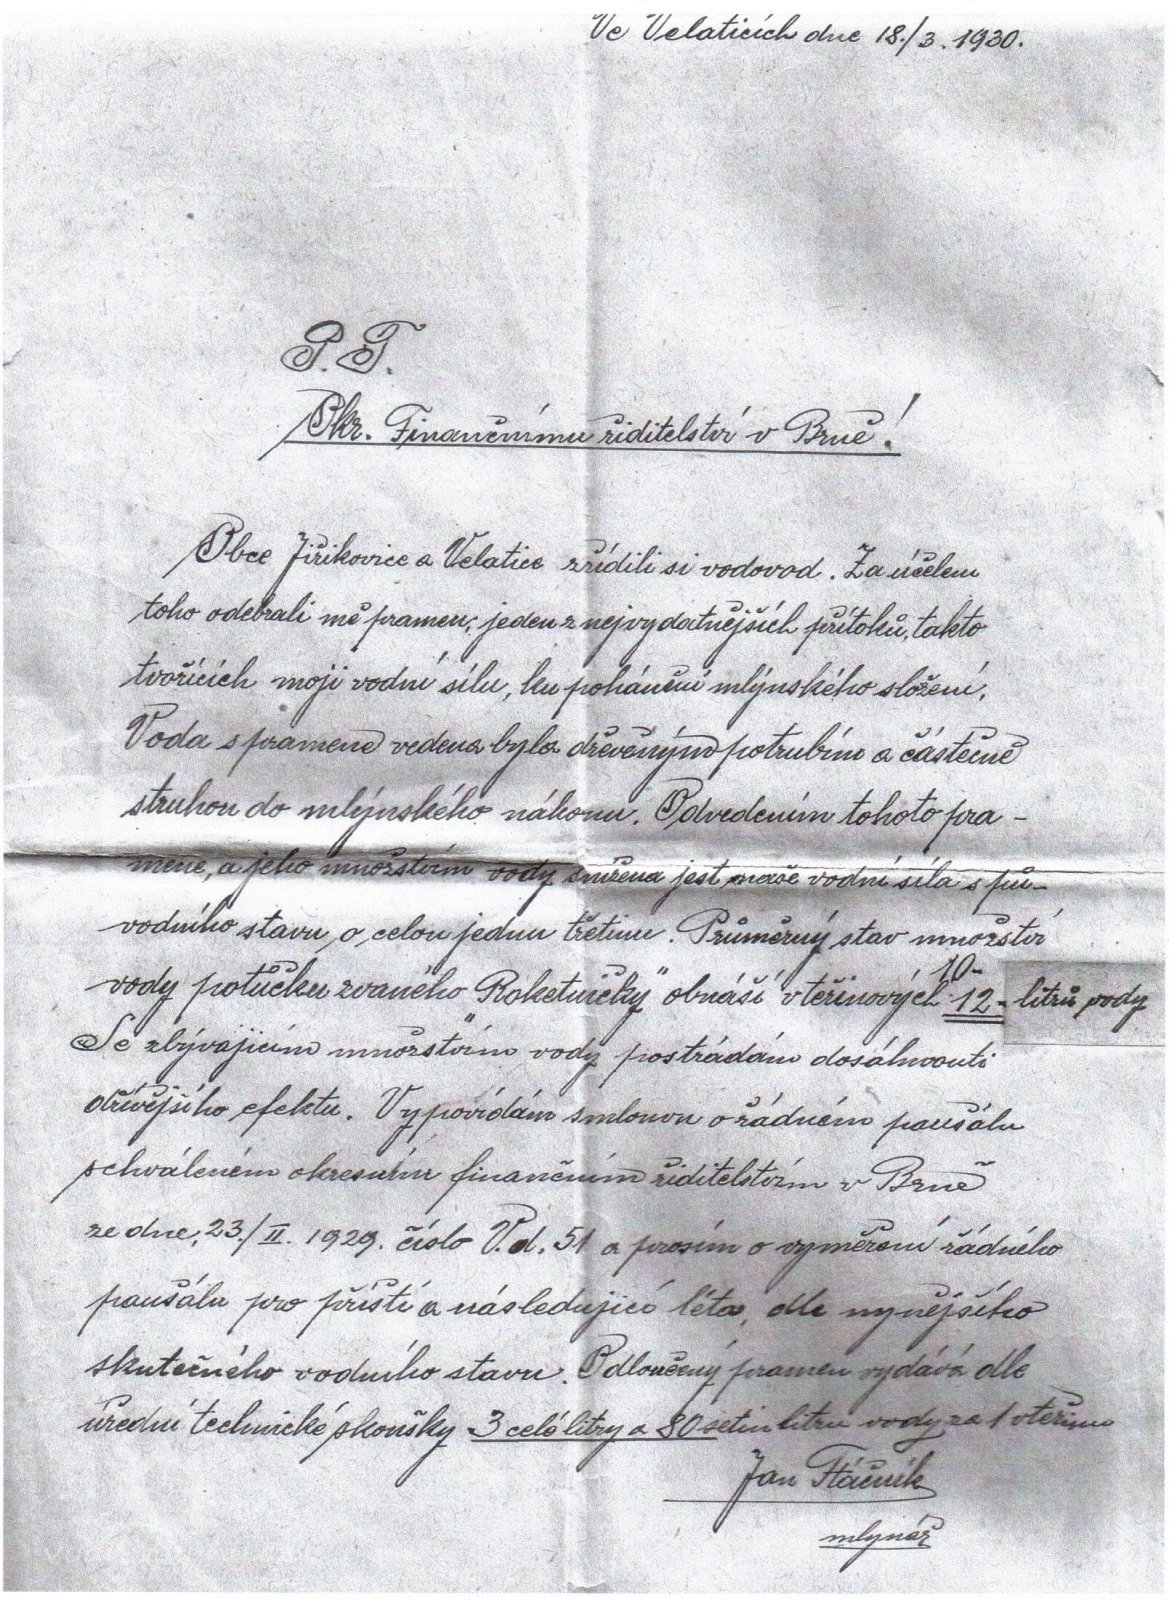 Ve Velaticích dne 18./3. 1930.
P. T.
Okr. Finančnímu řiditelství v Brně!
Obce Jiřikovice a Velatice zřídili si vodovod. Za účelem
toho odebrali mě pramen, jeden z nejvydatnějších přítoků, takto
tvořících moji vodní sílu, ku pohánění mlýnského složení.
Voda s pramene vedena byla dřevěným potrubím a částečně
struhou do mlýnského náhonu. Odvedením tohoto pra-
mene, a jeho množstvím vody snížena jest naše vodní síla s pů-
vodního stavu o celou jednu třetinu. Průměrný stav množství
vody potůčku zvaného "Roketničky" obnáší vteřinových 10-12- litrů vody
Se zbývajícím množstvím vody postrádám dosáhnouti
dřívějšího efektu. Vypovídám smlouvu o řádném paušálu
schváleném okresním finančním řiditelstvím v Brně
ze dne, 23./II. 1929. číslo V.d. 51 a prosím o vyměření řádného
paušálu pro příští a následující léta, dle nynějšího
skutečného vodního stavu. Odloučený pramen vydává dle
úřední technické skoušky 3 celé litry a 80 setin litru vody za 1 vteřinu
Jan Ptáčník
mlynář